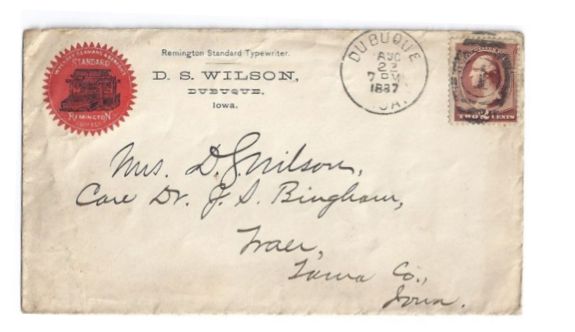 Remington Standard Typewriter.
D. S. WILSON,
DUBUQUE,
Iowa.
STANDARD
REMINGTON
DUBUQUE
AUG
7 PM
1887
IA.
TWO CENTS
Mrs. D. S. Wilson,
Care Dr. J. S. Bingham,
Traer,
Tama Co.,
Iowa.